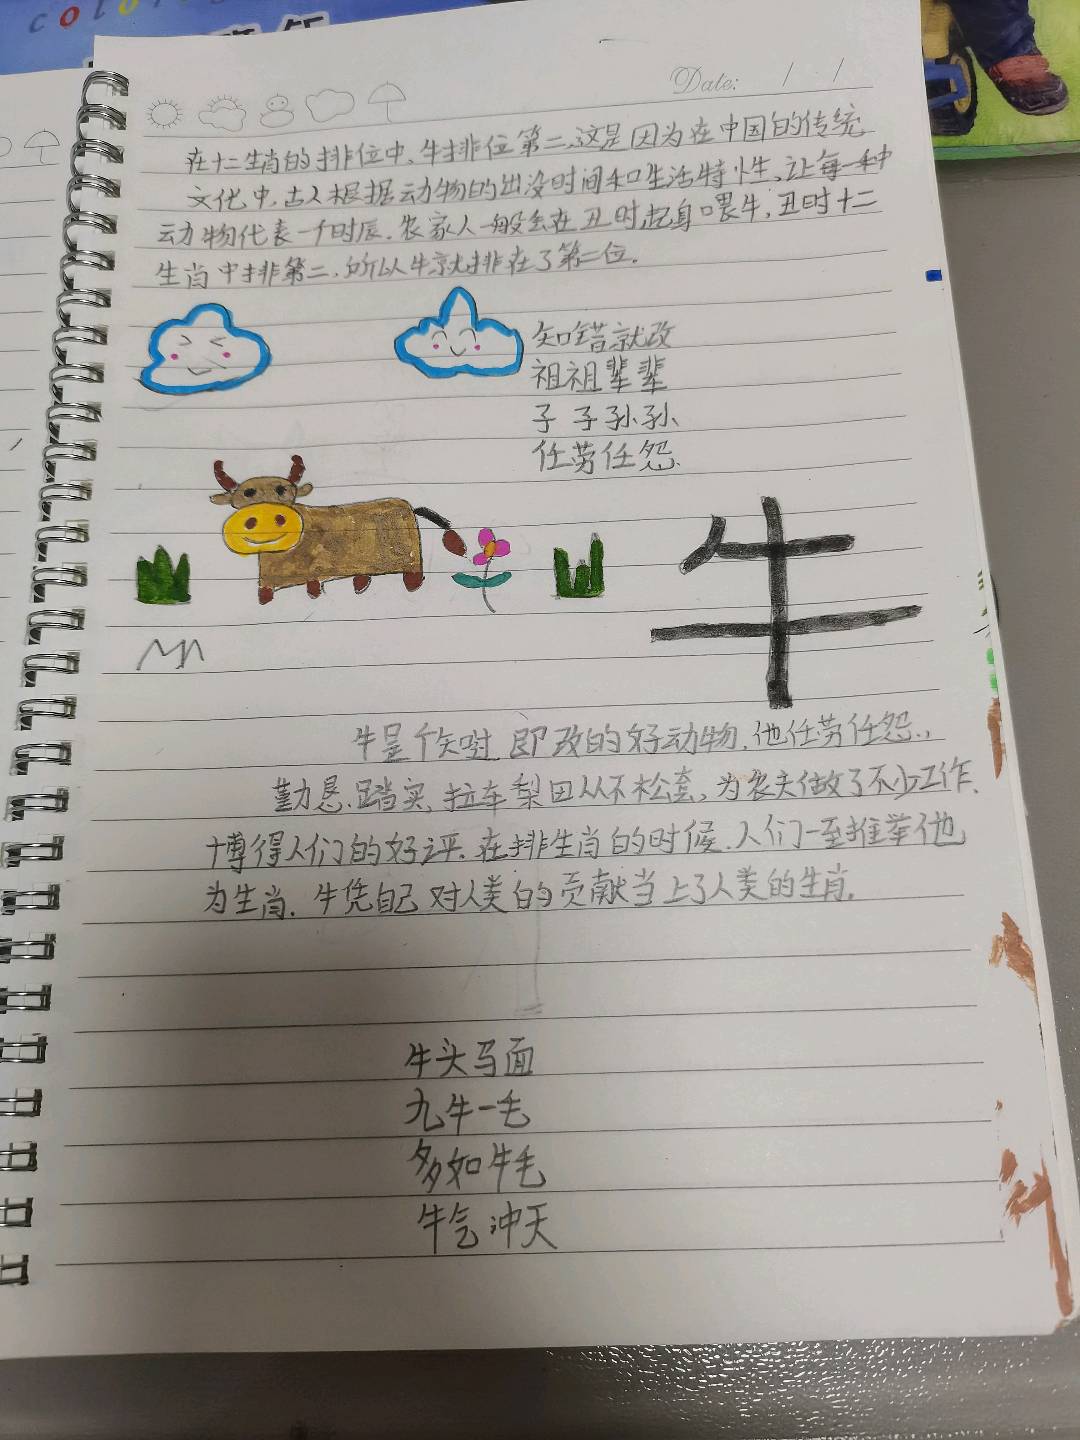 Date: / /
在十二生肖的排位中，牛排位第二，这是因为在中国的传统
文化中，古人根据动物的出没时间和生活特性，让每一种
动物代表一个时辰．农家人一般会在丑时起身喂牛，丑时十二
生肖中排第二，所以牛就排在了第二位．
知错就改
祖祖辈辈
子子孙孙
任劳任怨
牛
牛是个知错即改的好动物，他任劳任怨，
勤恳、踏实，拉车梨田从不松套，为农夫做了不少工作，
博得人们的好评．在排生肖的时候，人们一至推举他
为生肖．牛凭自己对人类的贡献当上了人类的生肖．
牛头马面
九牛一毛
多如牛毛
牛气冲天